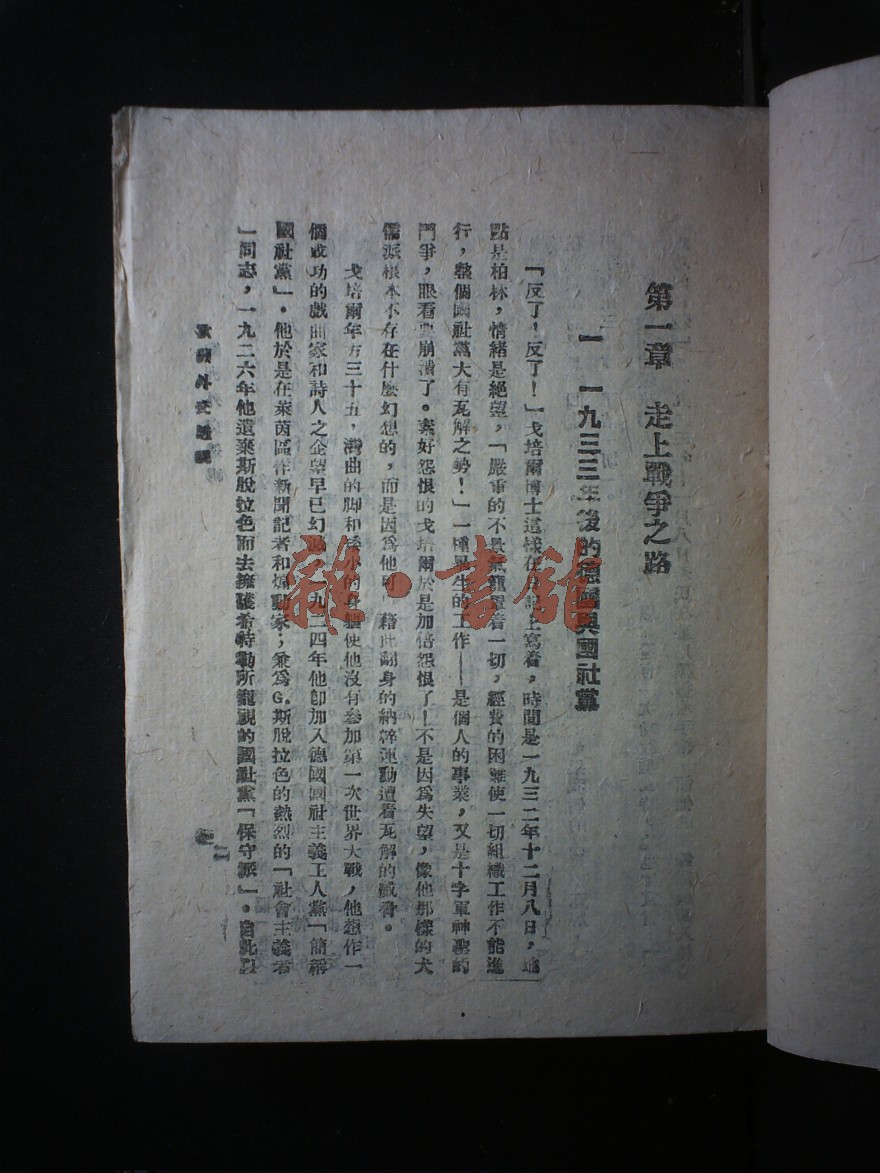 第一章　走上戰爭之路
一　一九三三年後的德國與國社黨
「反了！反了！」戈培爾博士這樣在日記上寫着，時間是一九三二年十二月八日，地
點是柏林，情緒是絕望，「嚴重的不景氣籠罩着一切，經費的困難使一切組織工作不能進
行，整個國社黨大有瓦解之勢！」一種畢生的工作——是個人的事業，又是十字軍神聖的
鬥爭，眼看要崩潰了。素好怨恨的戈培爾於是加倍怨恨了！不是因爲失望，像他那樣的犬
儒派根本不存在什麽幻想的，而是因爲他可藉此翻身的納粹運動遭着瓦解的威脅。
戈培爾年方三十五，灣曲的脚和矮小的身軀使他沒有參加第一次世界大戰，他想作一
個成功的戲曲家和詩人之企望早已幻滅一九二四年他卽加入德國國社主義工人黨「簡稱
國社黨」。他於是在萊茵區作新聞記者和煽動家；兼爲G.斯脫拉色的熱烈的「社會主義者
」同志，一九二六年他遺棄斯脫拉色而去擁護希特勒所寵視的國社黨「保守派」。自此以
外交透視
一
雜·書館